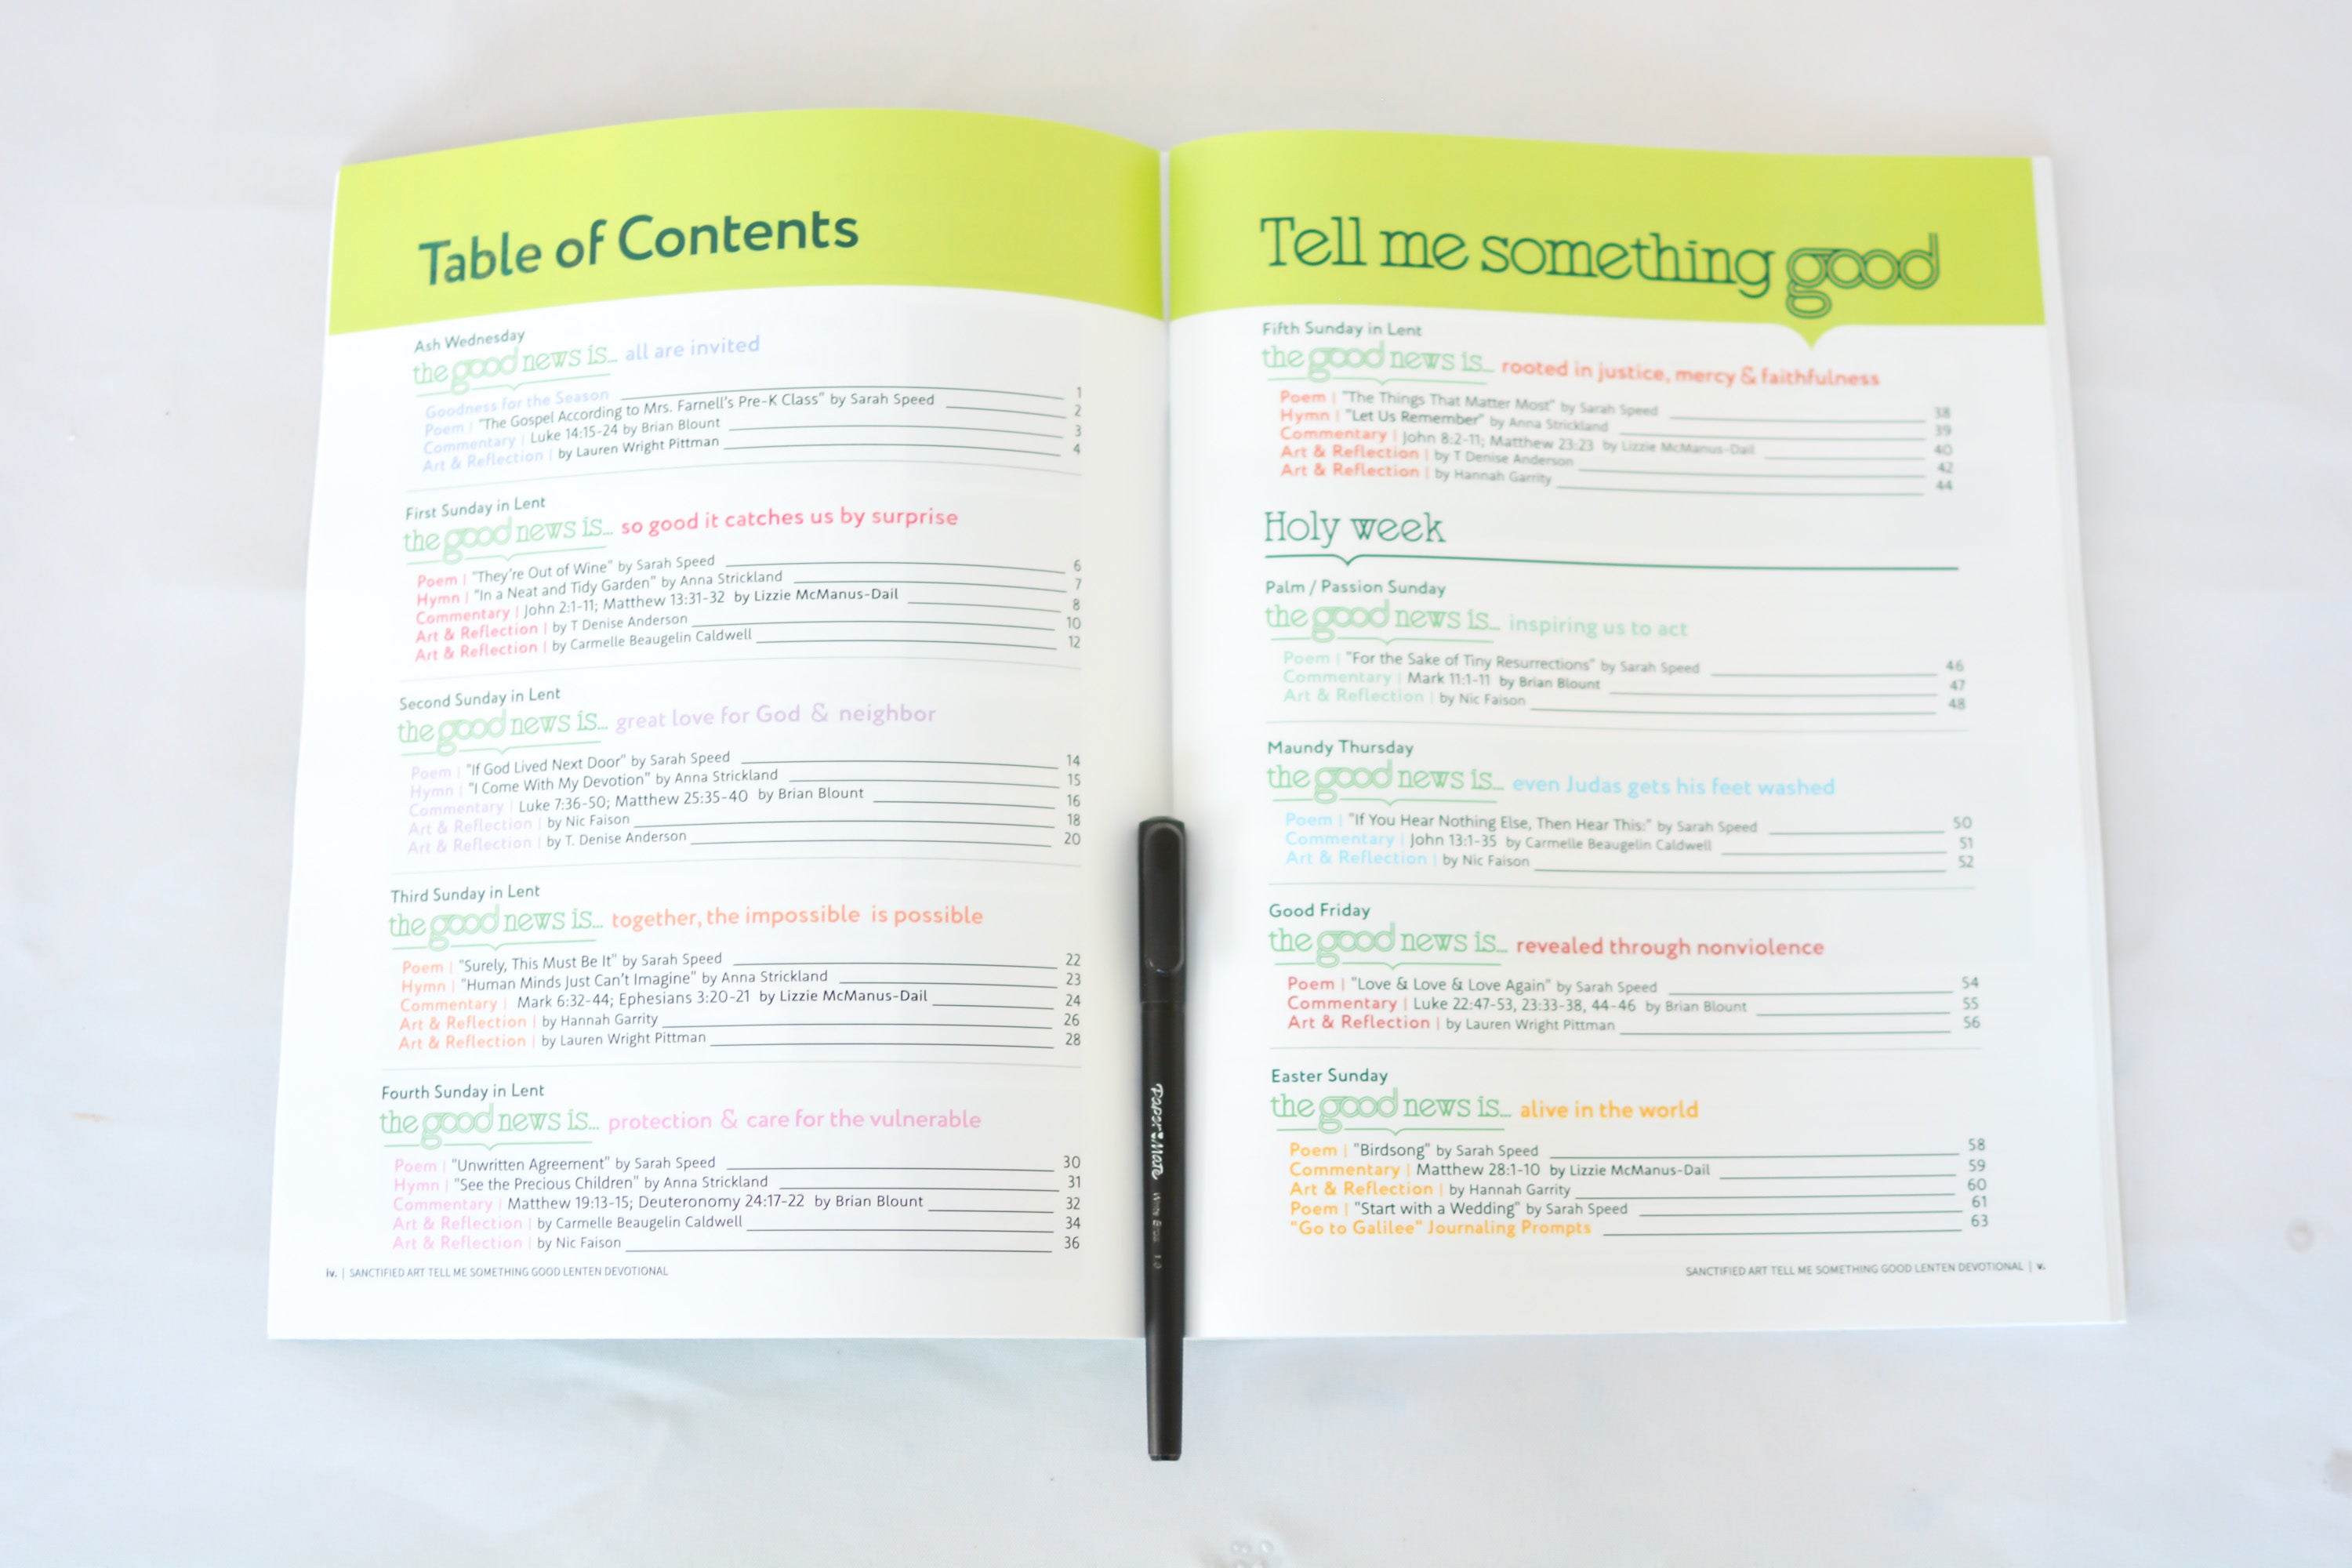 Table of Contents
Ash Wednesday
the good news is... all are invited
Goodness for the Season 1
Poem | "The Gospel According to Mrs. Farnell's Pre-K Class" by Sarah Speed 2
Commentary | Luke 14:15-24 by Brian Blount 3
Art & Reflection | by Lauren Wright Pittman 4
First Sunday in Lent
the good news is... so good it catches us by surprise
Poem | "They're Out of Wine" by Sarah Speed 6
Hymn | "In a Neat and Tidy Garden" by Anna Strickland 7
Commentary | John 2:1-11; Matthew 13:31-32 by Lizzie McManus-Dail 8
Art & Reflection | by T Denise Anderson 10
Art & Reflection | by Carmelle Beaugelin Caldwell 12
Second Sunday in Lent
the good news is... great love for God & neighbor
Poem | "If God Lived Next Door" by Sarah Speed 14
Hymn | "I Come With My Devotion" by Anna Strickland 15
Commentary | Luke 7:36-50; Matthew 25:35-40 by Brian Blount 16
Art & Reflection | by Nic Faison 18
Art & Reflection | by T. Denise Anderson 20
Third Sunday in Lent
the good news is... together, the impossible is possible
Poem | "Surely, This Must Be It" by Sarah Speed 22
Hymn | "Human Minds Just Can't Imagine" by Anna Strickland 23
Commentary | Mark 6:32-44; Ephesians 3:20-21 by Lizzie McManus-Dail 24
Art & Reflection | by Hannah Garrity 26
Art & Reflection | by Lauren Wright Pittman 28
Fourth Sunday in Lent
the good news is... protection & care for the vulnerable
Poem | "Unwritten Agreement" by Sarah Speed 30
Hymn | "See the Precious Children" by Anna Strickland 31
Commentary | Matthew 19:13-15; Deuteronomy 24:17-22 by Brian Blount 32
Art & Reflection | by Carmelle Beaugelin Caldwell 34
Art & Reflection | by Nic Faison 36
iv. | SANCTIFIED ART TELL ME SOMETHING GOOD LENTEN DEVOTIONAL
Tell me something good
Fifth Sunday in Lent
the good news is... rooted in justice, mercy & faithfulness
Poem | "The Things That Matter Most" by Sarah Speed 38
Hymn | "Let Us Remember" by Anna Strickland 39
Commentary | John 8:2-11; Matthew 23:23 by Lizzie McManus-Dail 40
Art & Reflection | by T Denise Anderson 42
Art & Reflection | by Hannah Garrity 44
Holy week
Palm / Passion Sunday
the good news is... inspiring us to act
Poem | "For the Sake of Tiny Resurrections" by Sarah Speed 46
Commentary | Mark 11:1-11 by Brian Blount 47
Art & Reflection | by Nic Faison 48
Maundy Thursday
the good news is... even Judas gets his feet washed
Poem | "If You Hear Nothing Else, Then Hear This:" by Sarah Speed 50
Commentary | John 13:1-35 by Carmelle Beaugelin Caldwell 51
Art & Reflection | by Nic Faison 52
Good Friday
the good news is... revealed through nonviolence
Poem | "Love & Love & Love Again" by Sarah Speed 54
Commentary | Luke 22:47-53, 23:33-38, 44-46 by Brian Blount 55
Art & Reflection | by Lauren Wright Pittman 56
Easter Sunday
the good news is... alive in the world
Poem | "Birdsong" by Sarah Speed 58
Commentary | Matthew 28:1-10 by Lizzie McManus-Dail 59
Art & Reflection | by Hannah Garrity 60
Poem | "Start with a Wedding" by Sarah Speed 61
"Go to Galilee" Journaling Prompts 63
SANCTIFIED ART TELL ME SOMETHING GOOD LENTEN DEVOTIONAL | v.
Paper Mate Write Bros 1.0